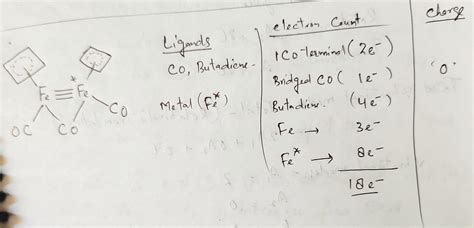 Ligands
CO, Butadiene.
Metal (Fe*)
electron Count
1 CO-terminal (2e⁻)
Bridged CO (1e⁻)
Butadiene. (4e⁻)
Fe → 3e⁻
Fe* → 8e⁻
18e⁻
Charge
'0'
Fe≡Fe*
CO
OC CO